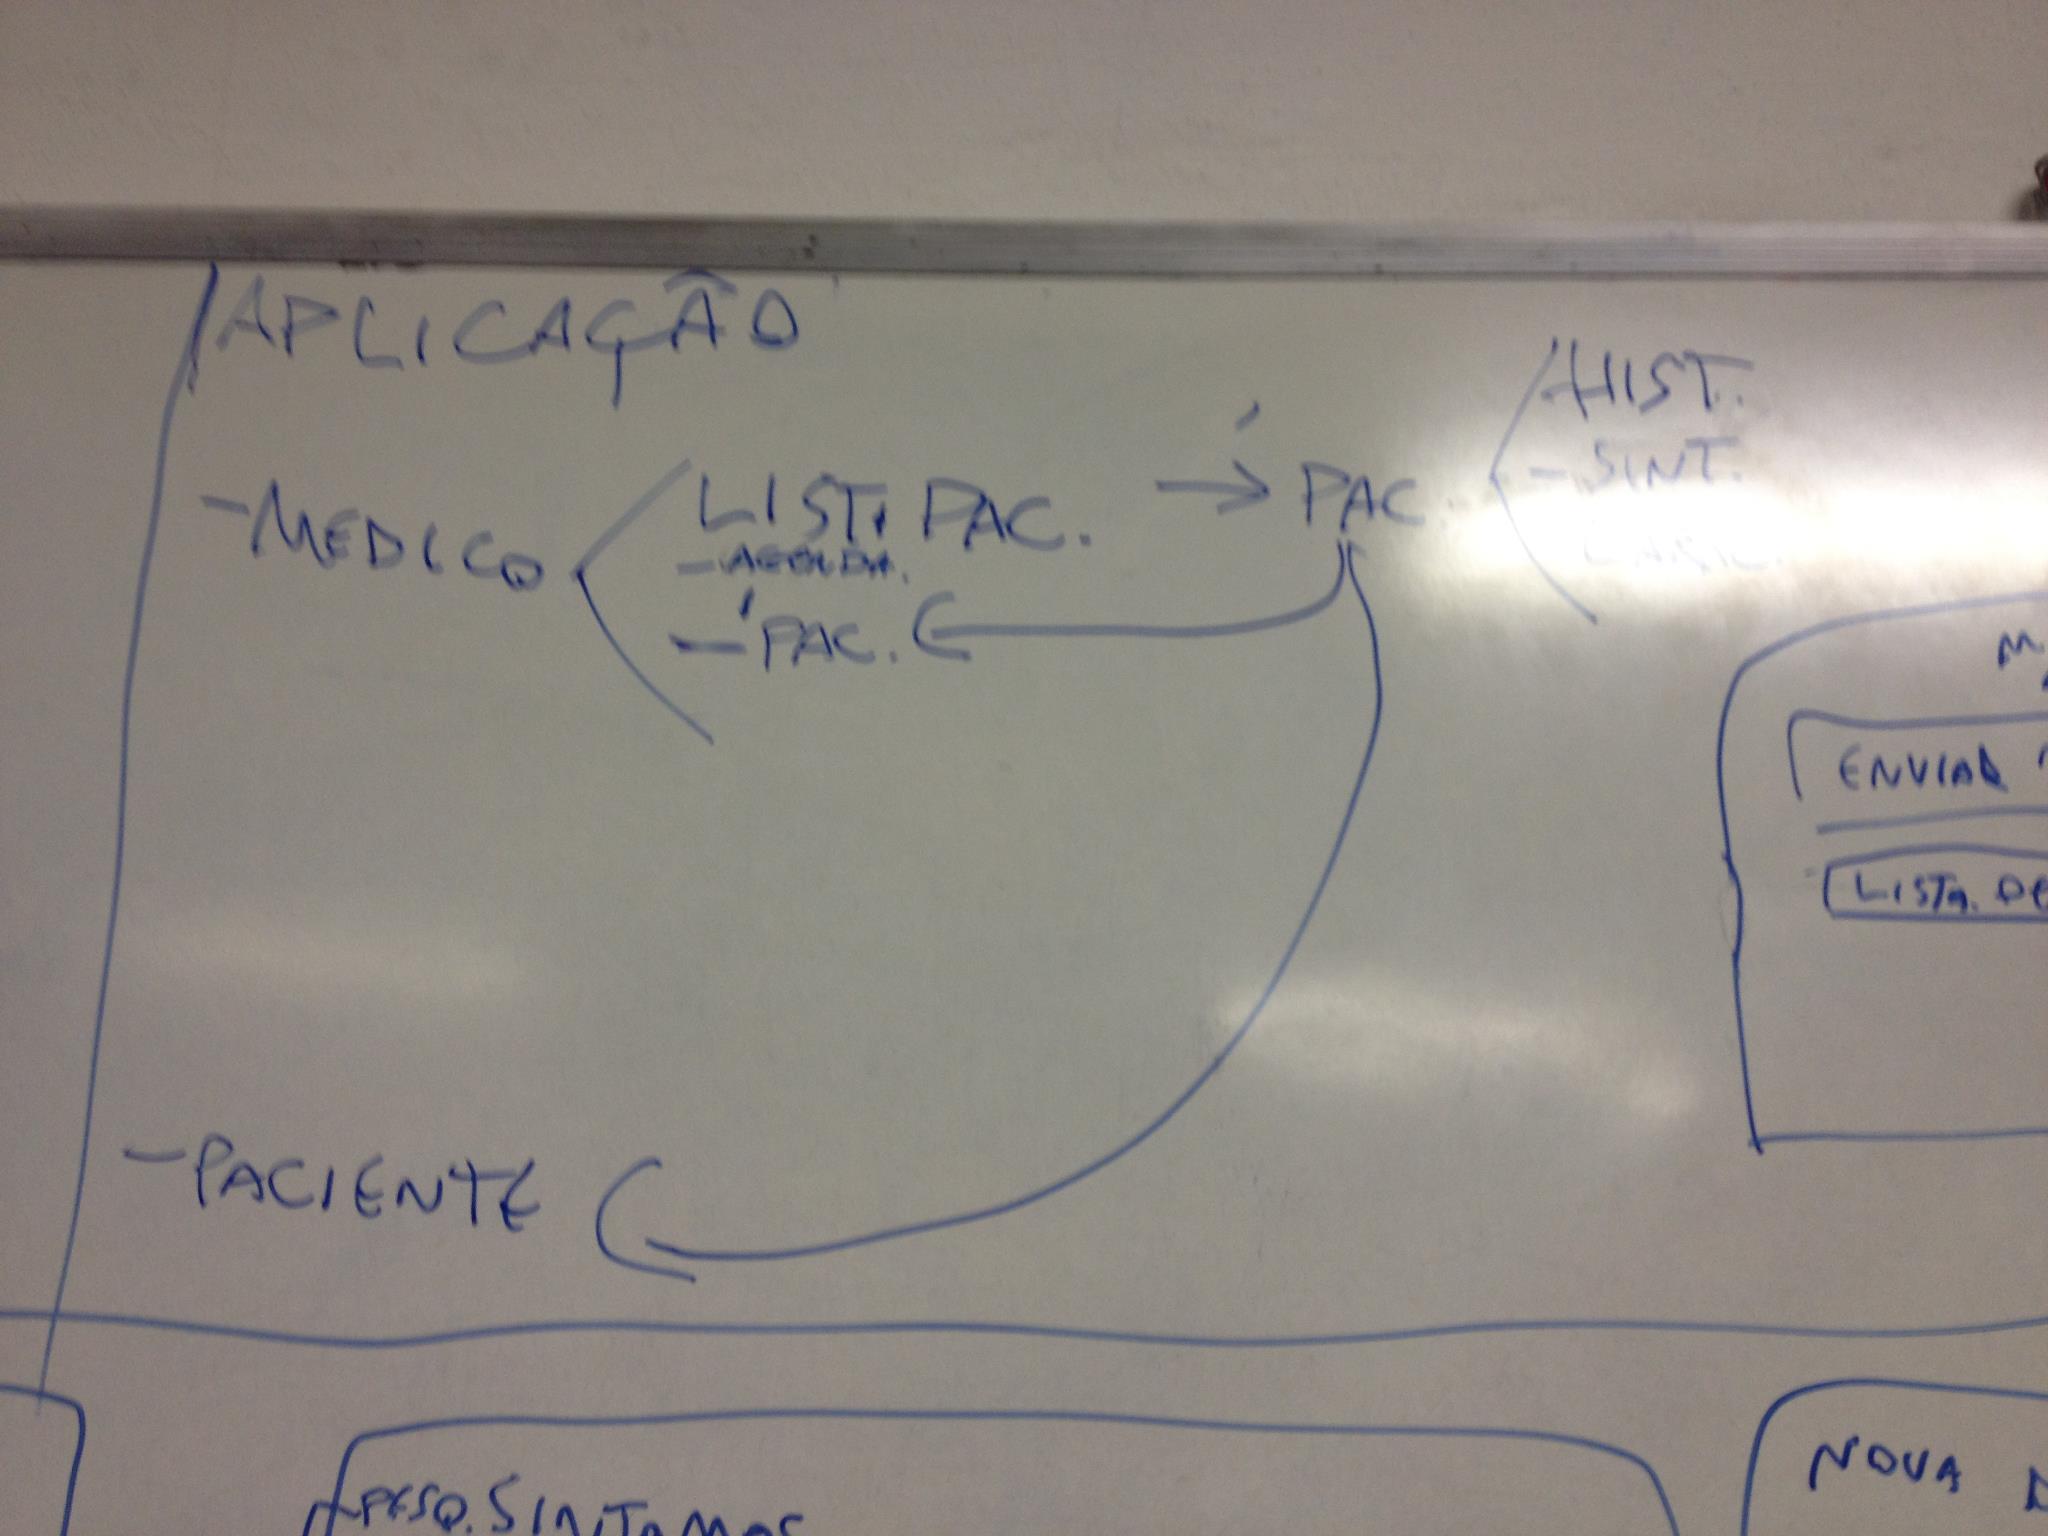 APLICAÇÃO
- MEDICO
LIST. PAC.
- AGENDA.
- PAC.
→ PAC.
- HIST.
- SINT.
- PACIENTE
ENVIAR
LISTA. DE
- PESQ. SINTOMAS
NOVA